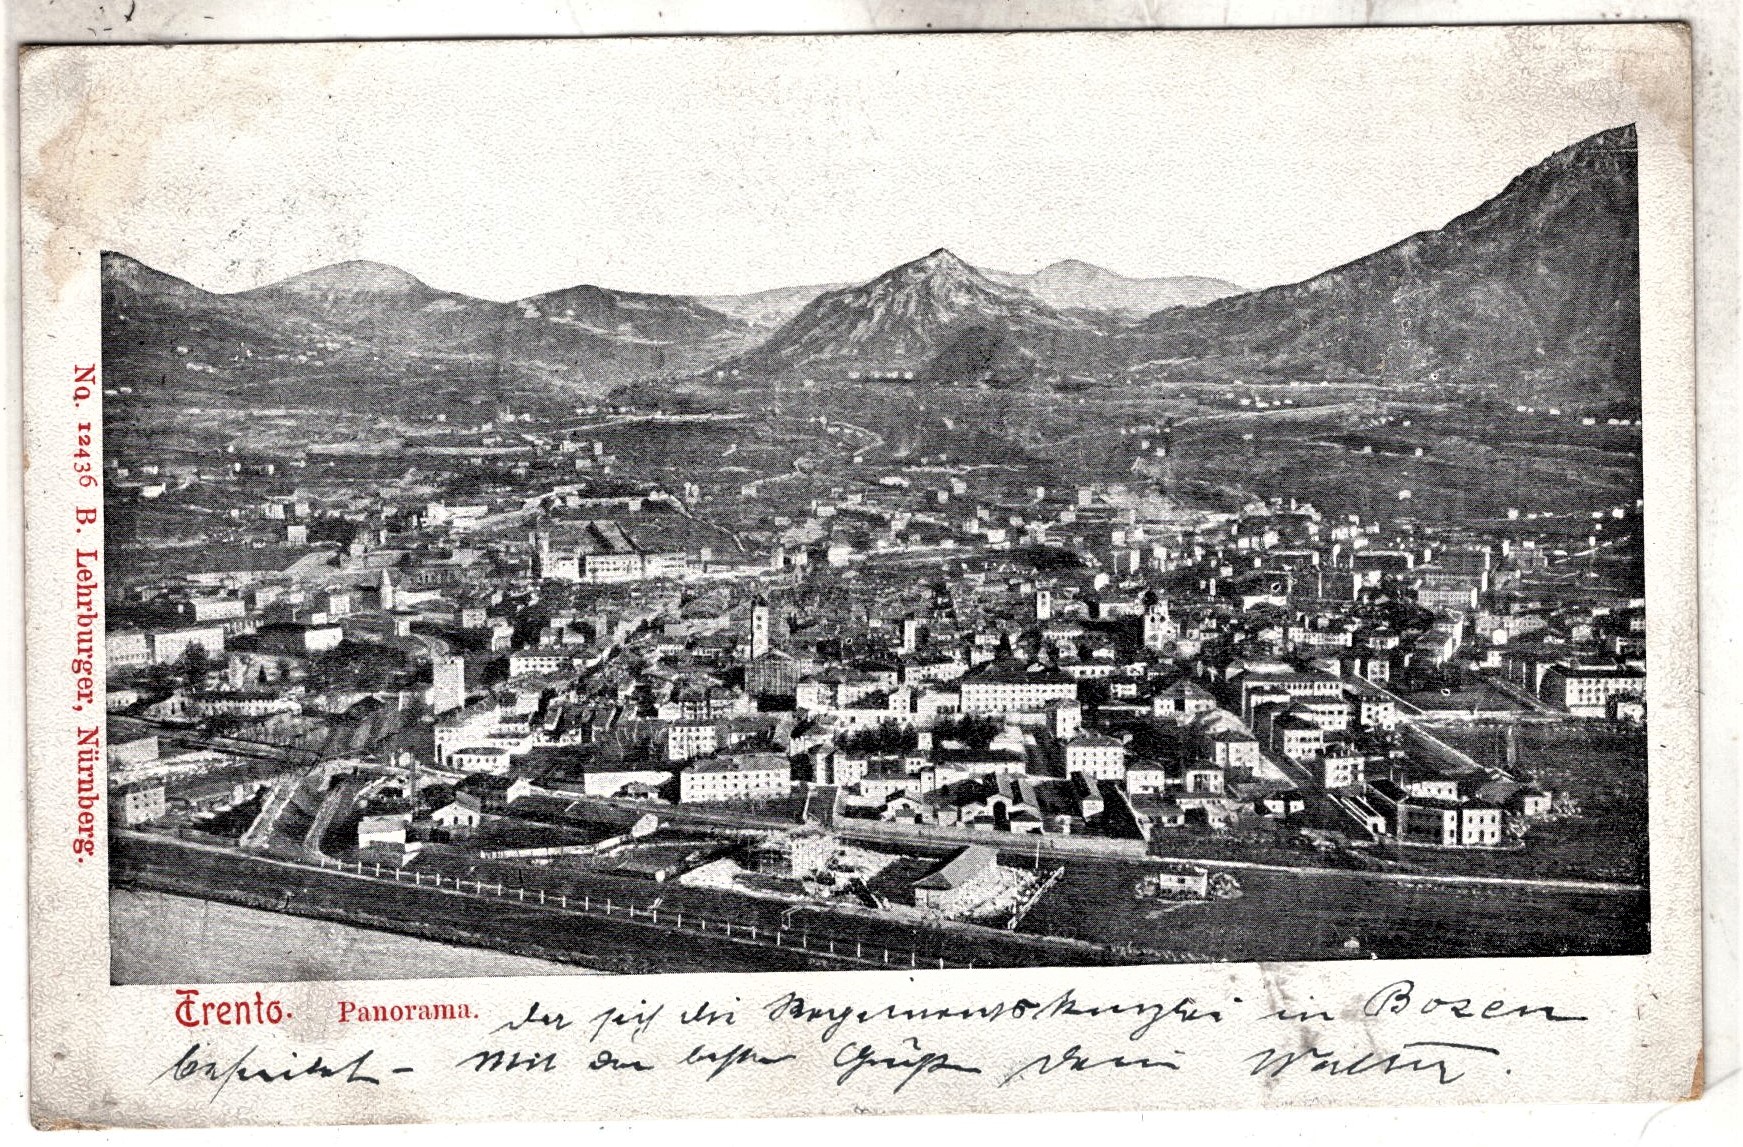 No. 12436 B. Lehrburger, Nürnberg.
Trento. Panorama.
da sich die Regimentskanzlei in Bozen
befindet - Mit den besten Grüßen Dein Walter.